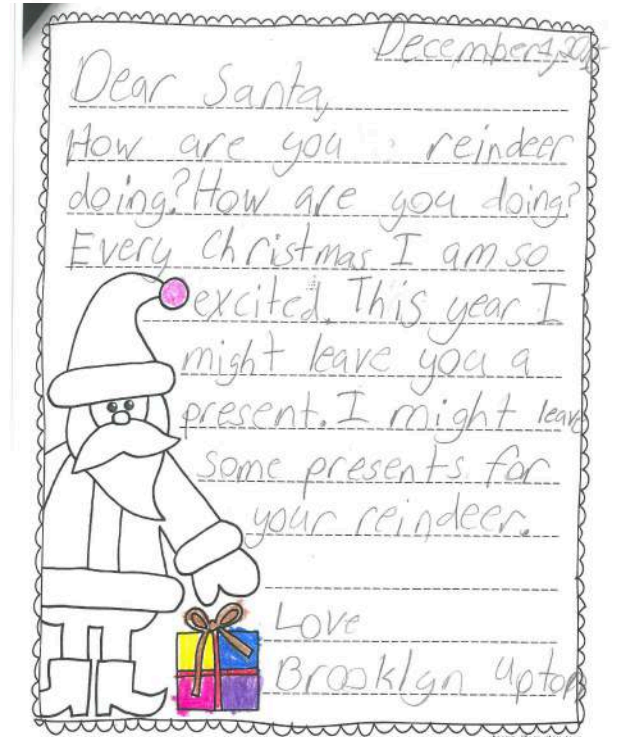 December 1, 
Dear Santa,
How are you reindeer
doing? How are you doing?
Every Christmas I am so
excited. This year I
might leave you a
present. I might leave
some presents for
your reindeer.
Love
Brooklyn Upton